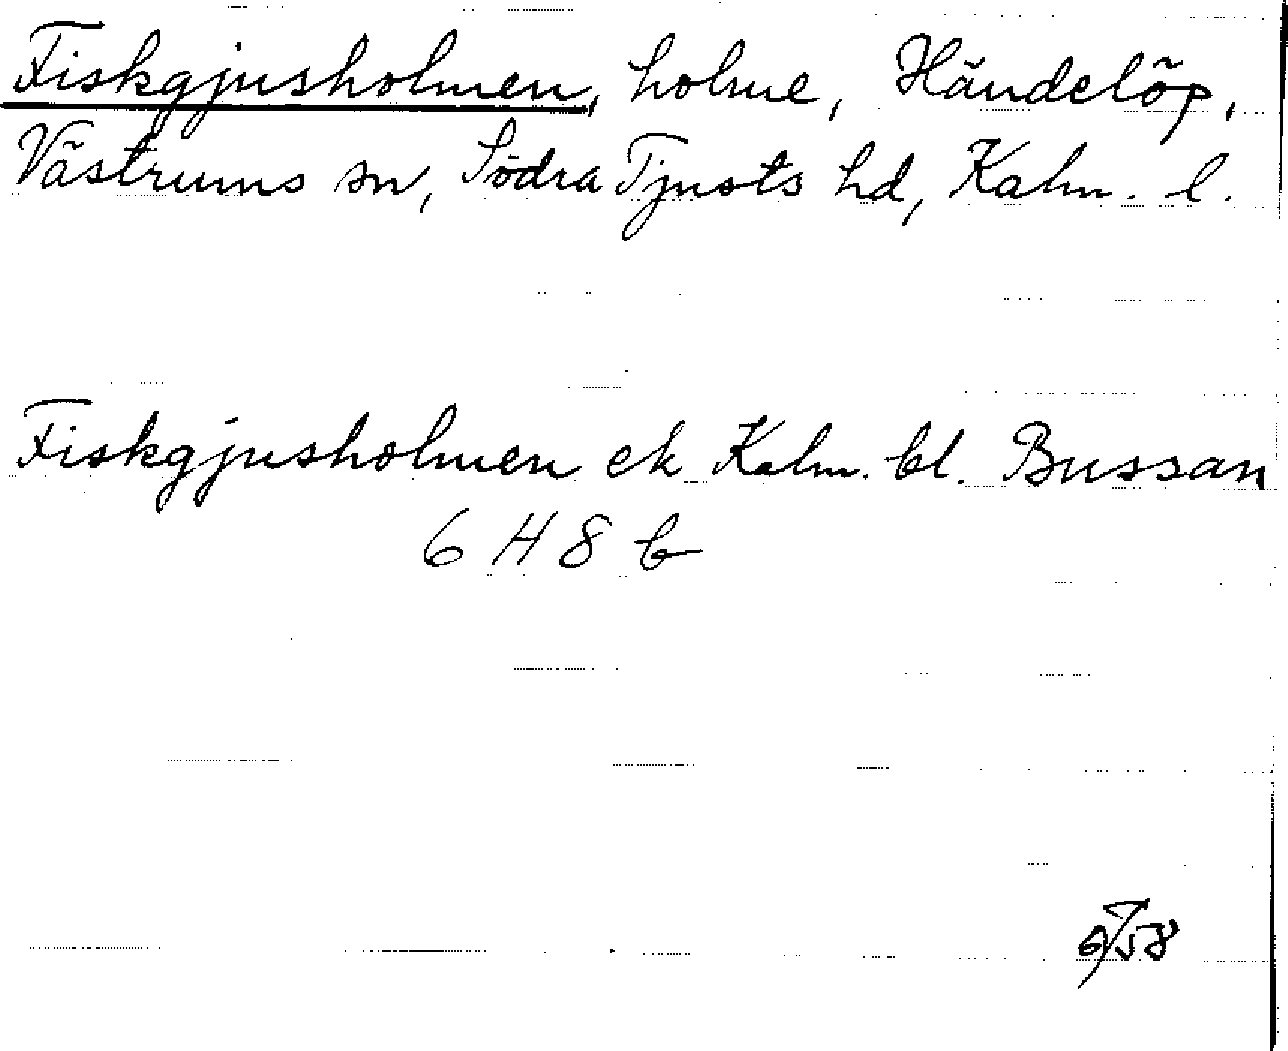 Fiskgjusholmen, holme, Händelöp,
Västrums sn, Södra Tjusts hd, Kalm. l.
Fiskgjusholmen ek Kalm. bl. Bussan
6 H 8 b